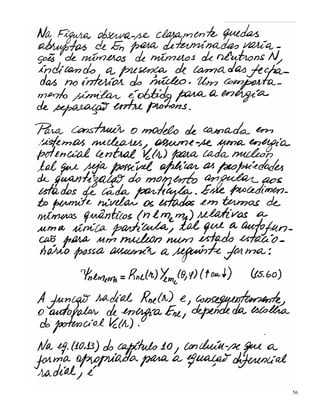 Na Figura observa-se claramente quedas
abruptas de En para determinadas varia-
ções de números de números de nêutrons N,
indicando a presença de camadas fecha-
das no interior do núcleo. Um comporta-
mento similar é obtido para a energia
de separação entre prótons.
Para construir o modelo de camada em
sistemas nucleares, assume-se uma energia
potencial central Vc(r) para cada nucleon,
tal que seja possível aplicar as propriedades
de quantização do momento angular aos
estados de cada partícula. Este procedimen-
to permite nivelar os estados em termos de
números quânticos (n l mₗ mₛ) relativos a
uma única partícula, tal que a autofun-
ção para um nucleon num estado estacio-
nário possa assumir a seguinte forma:
Ψnlmₗmₛ = Rnl(r) Ylmₗ(θ,φ) (↑ou↓) (15.60)
A função radial Rnl(r) e, consequentemente,
o autovalor de energia Enl, depende da escolha
do potencial Vc(r).
Na eq. (10.13) do capítulo 10, conclui-se que a
forma apropriada para a equação diferencial
radial, é
56